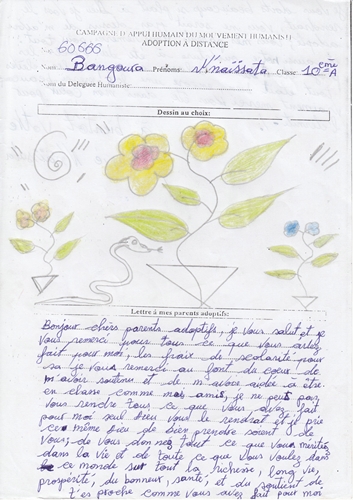 CAMPAGNE D'APPUI HUMAIN DU MOUVEMENT HUMANISTE
ADOPTION A DISTANCE
60666
Nom: Bangoura Prénoms: M'naïssata Classe: 10ème A
Noms du Deleguee Humaniste:
Dessin au choix:
Lettre à mes parents adoptifs:
Bonjour chers parents adoptifs, je vous salut et je
vous remerci pour tous ce que vous avez
fait pour moi, les fraix de scolarité pour
sa je vous remerci au font du cœur de
m'avoir soutenu et de m'avoir aidée à être
en classe comme mes amis, je ne peus pas
vous rendre tous ce que vous avez fait
pour moi seul Dieu vous le rendrat et je prie
ce même Dieu de bien prendre soient de
vous; de vous donnez tout ce que vous méritez
dans la vie et de toute ce que vous voulez dans
ce monde surtout la richesse, long vie,
prospérité, du bonheur, santé, et du soutient de
proche comme vous avez fait pour moi